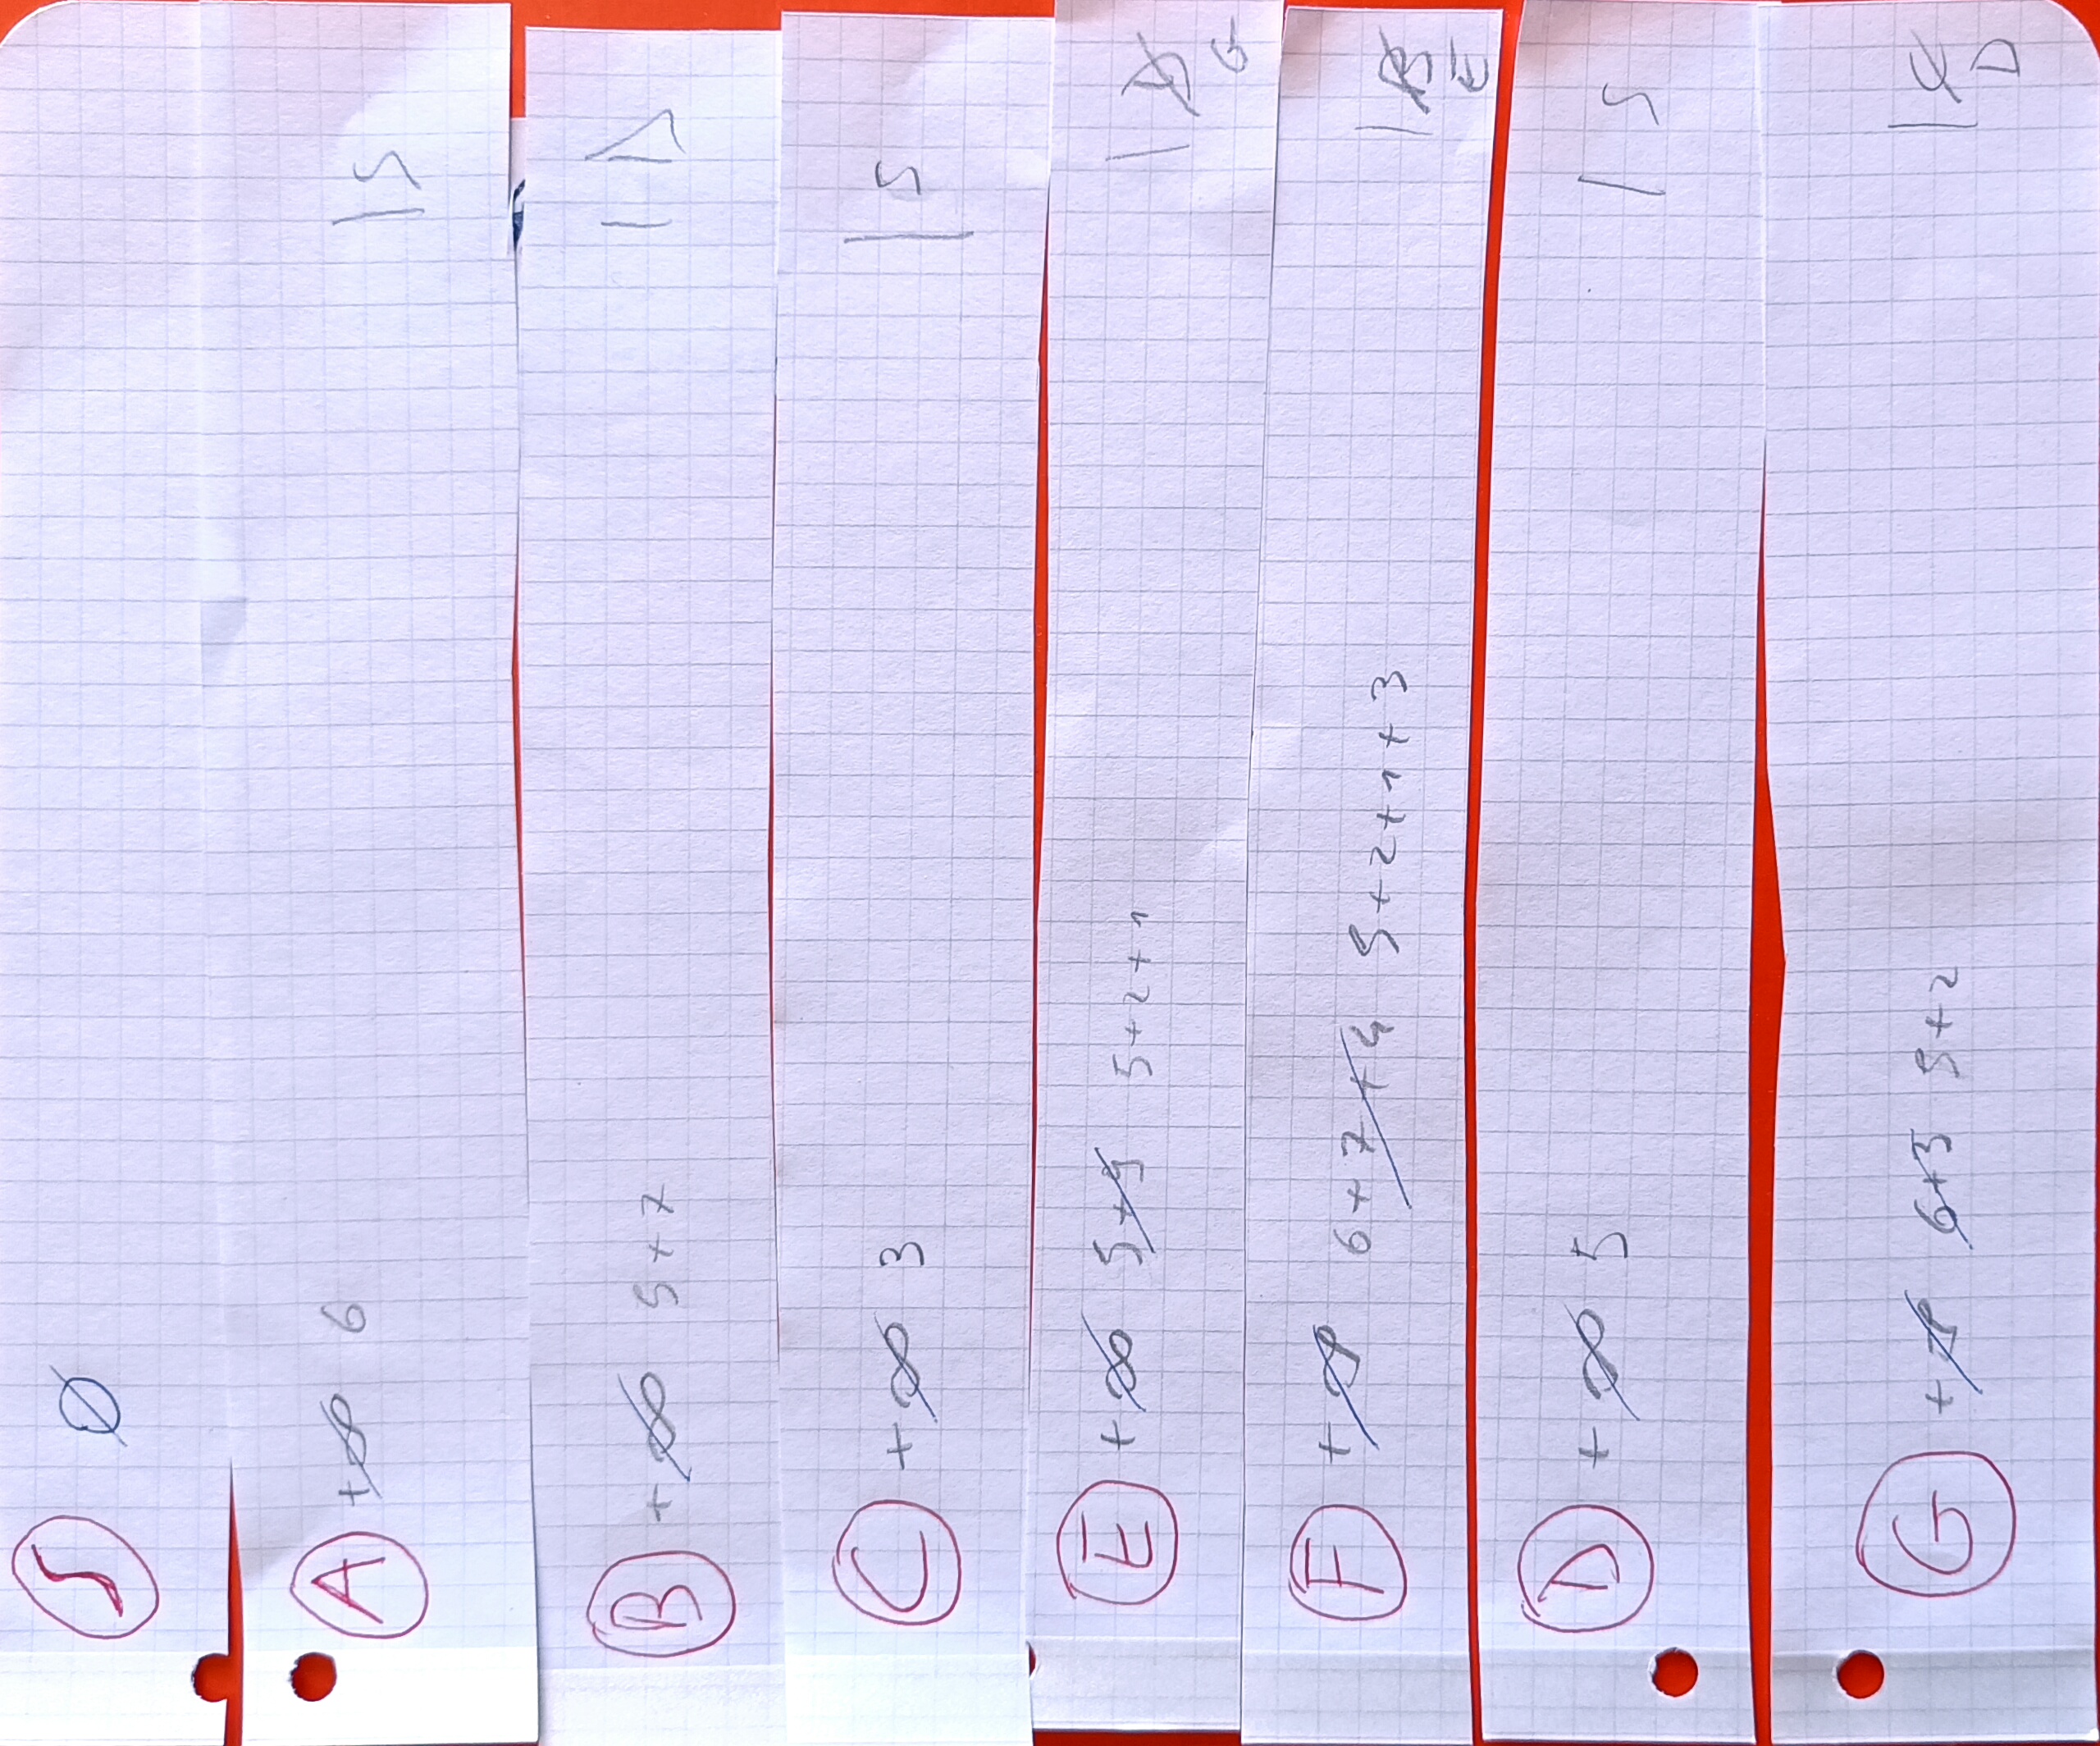 S ∅
A +∞ 6 | S
B +∞ 5+7 | D
C +∞ 3 | S
E +∞ 5+9 5+2+1 | D G
F +∞ 6+7+4 5+2+1+3 | B E
D +∞ 5 | S
G +∞ 6+3 5+2 | D